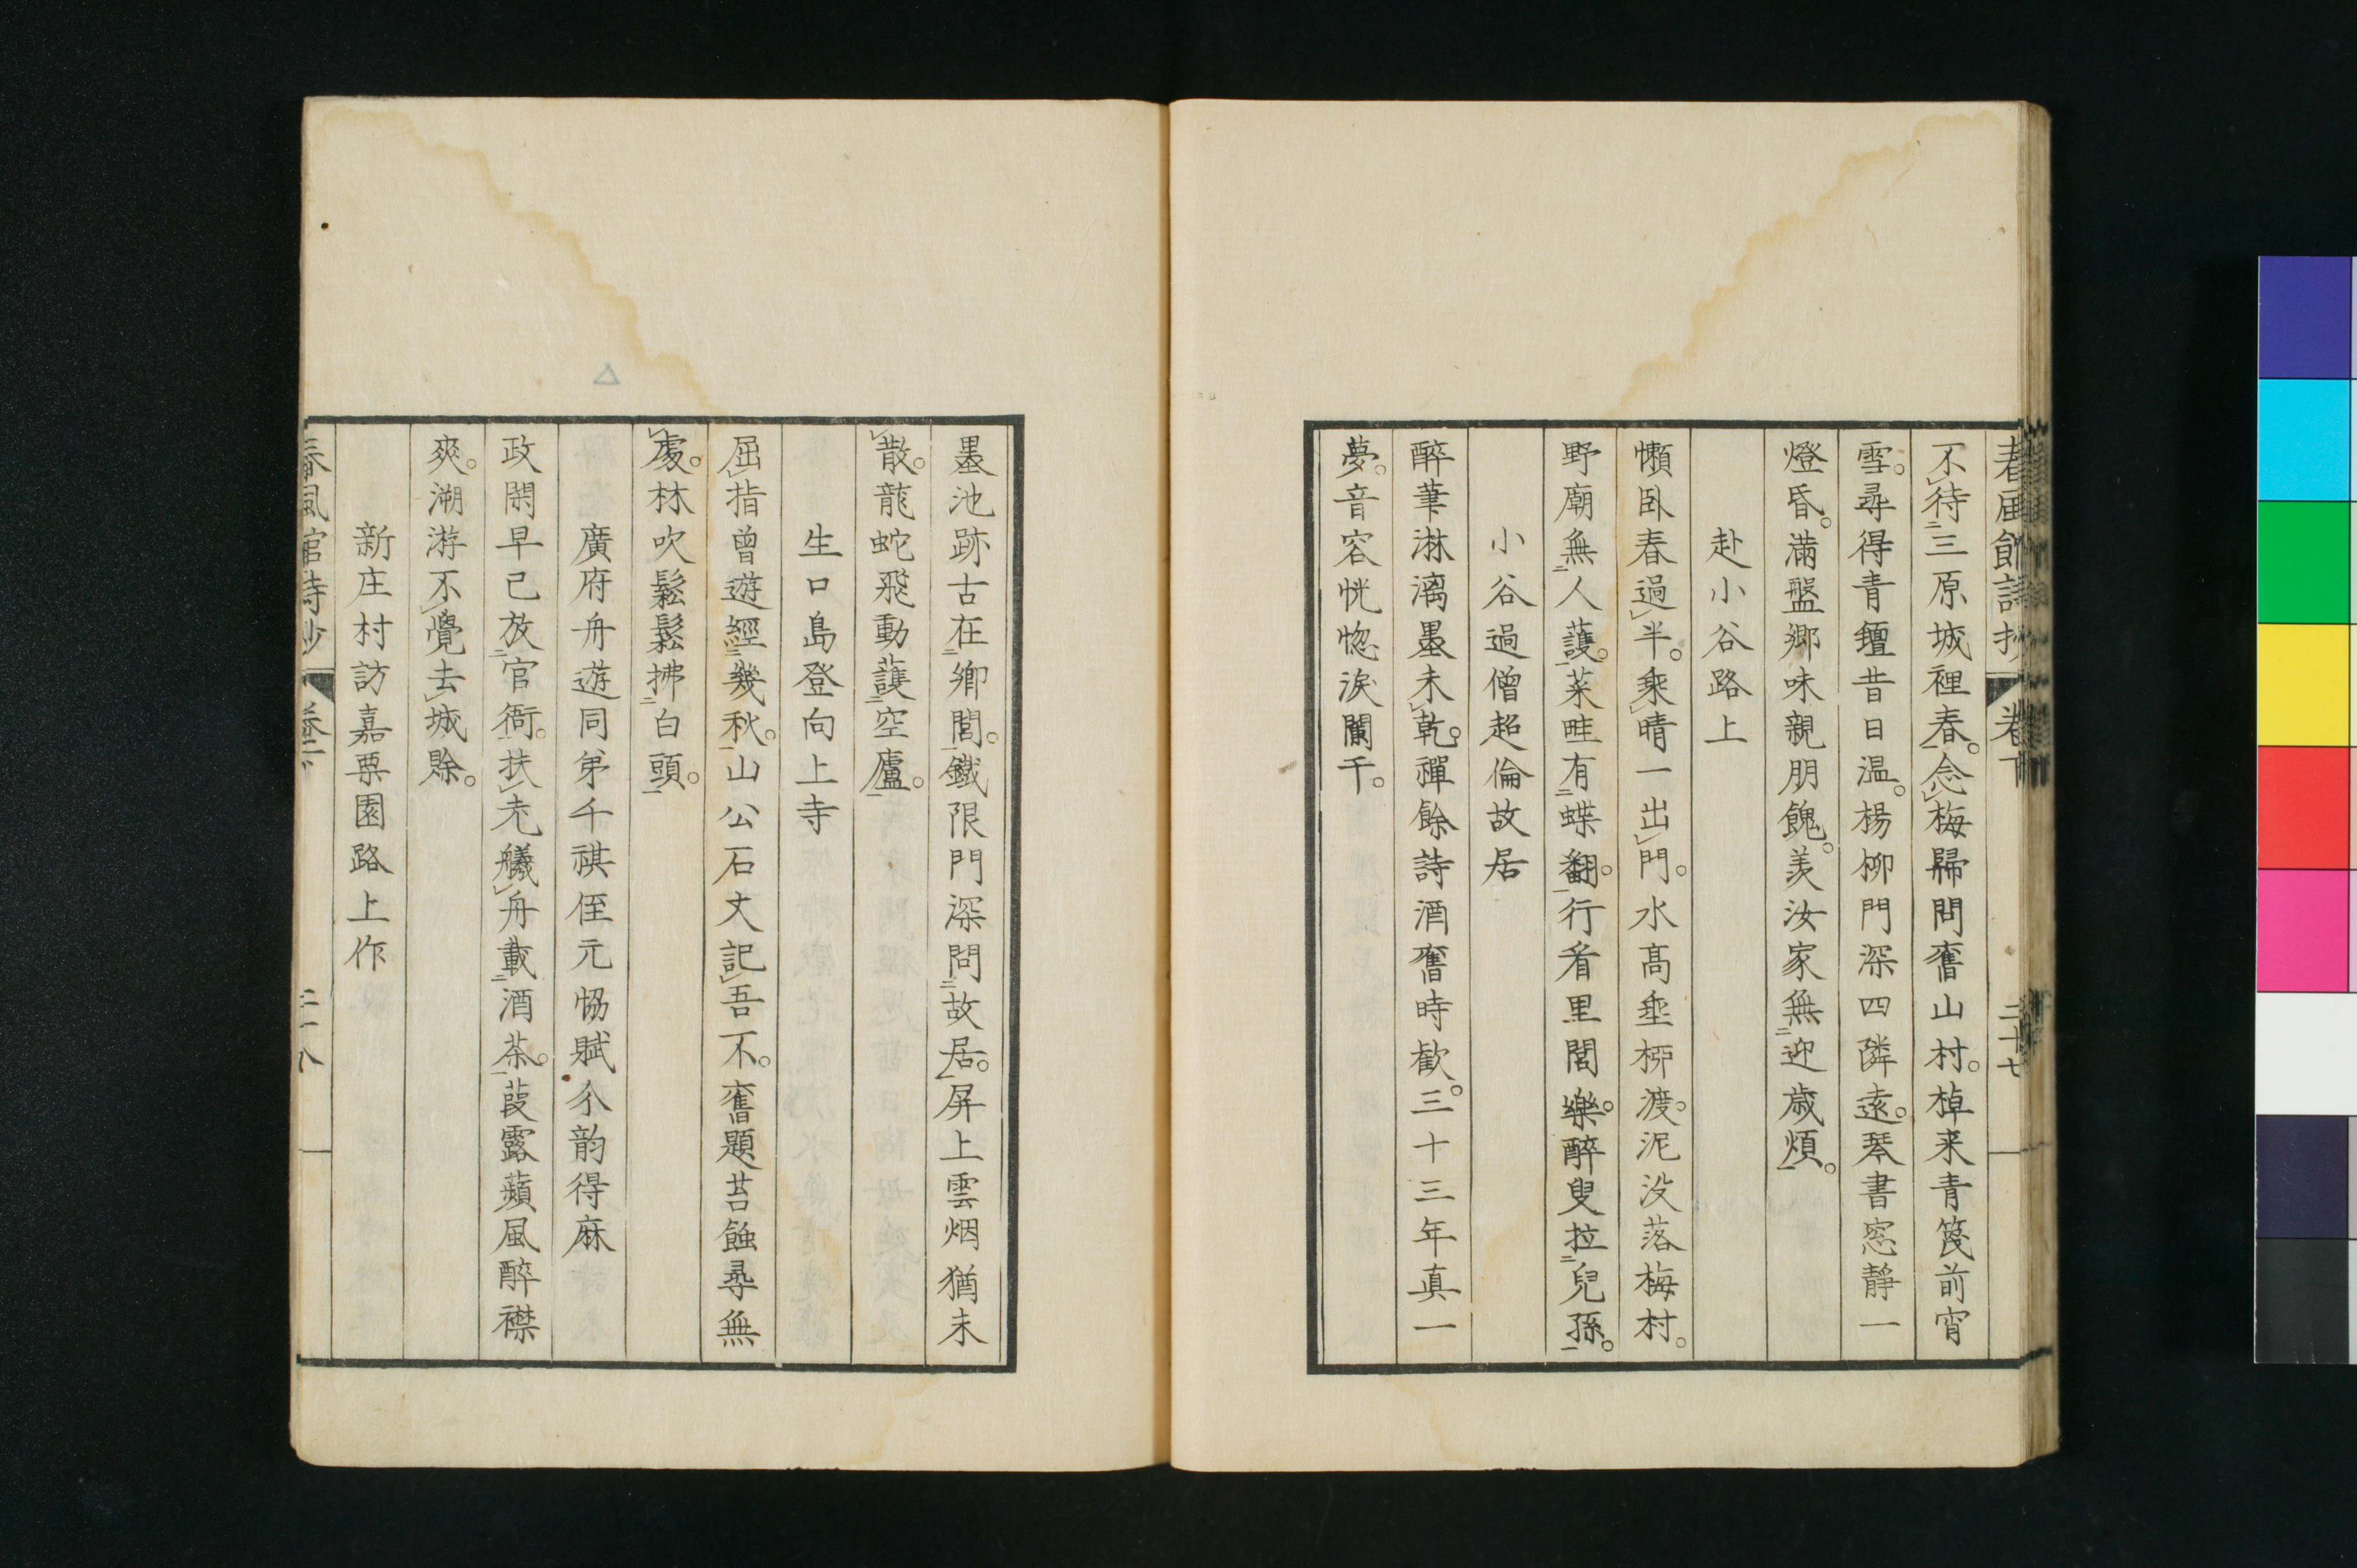 春風館詩抄 卷下 二十七
不待三原城裡春。念梅歸問舊山村。棹来青篾前宵
雪。尋得青氊昔日温。楊柳門深四隣遠。琴書窓靜一
燈昏。滿盤鄉味親朋餽。羨汝家無迎歳煩。
赴小谷路上
懶臥春過半。乘晴一出門。水高垂柳渡。泥没落梅村。
野廟無人護。菜畦有蝶翻。行看里閭樂。醉叟拉兒孫。
小谷過僧超倫故居
醉筆淋漓墨未乾。禪餘詩酒舊時歡。三十三年真一
夢。音容恍惚淚闌干。
墨池跡古在鄉閭。鐵限門深問故居。屏上雲烟猶未
散。龍蛇飛動護空廬。
生口島登向上寺
屈指曾遊經幾秋。山公石丈記吾不。舊題苔蝕尋無
處。林吹鬆鬆拂白頭。
廣府舟遊同弟千祺侄元協賦分韵得麻
政閑早已放官衙。扶老艤舟載酒茶。葭露蘋風醉襟
爽。溯游不覺去城賖。
新庄村訪嘉栗園路上作
春風館詩抄 卷下 二十八